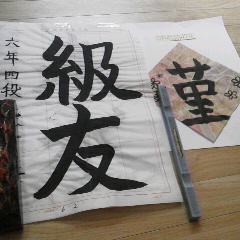 級友
六年四段
菫